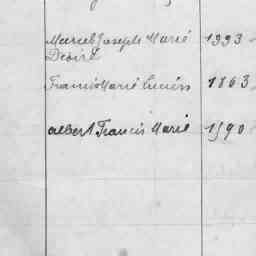 Marcel Joseph Marié 1893
Désiré
Francis Marié Lucien 1863
albert Francis Marié 1890